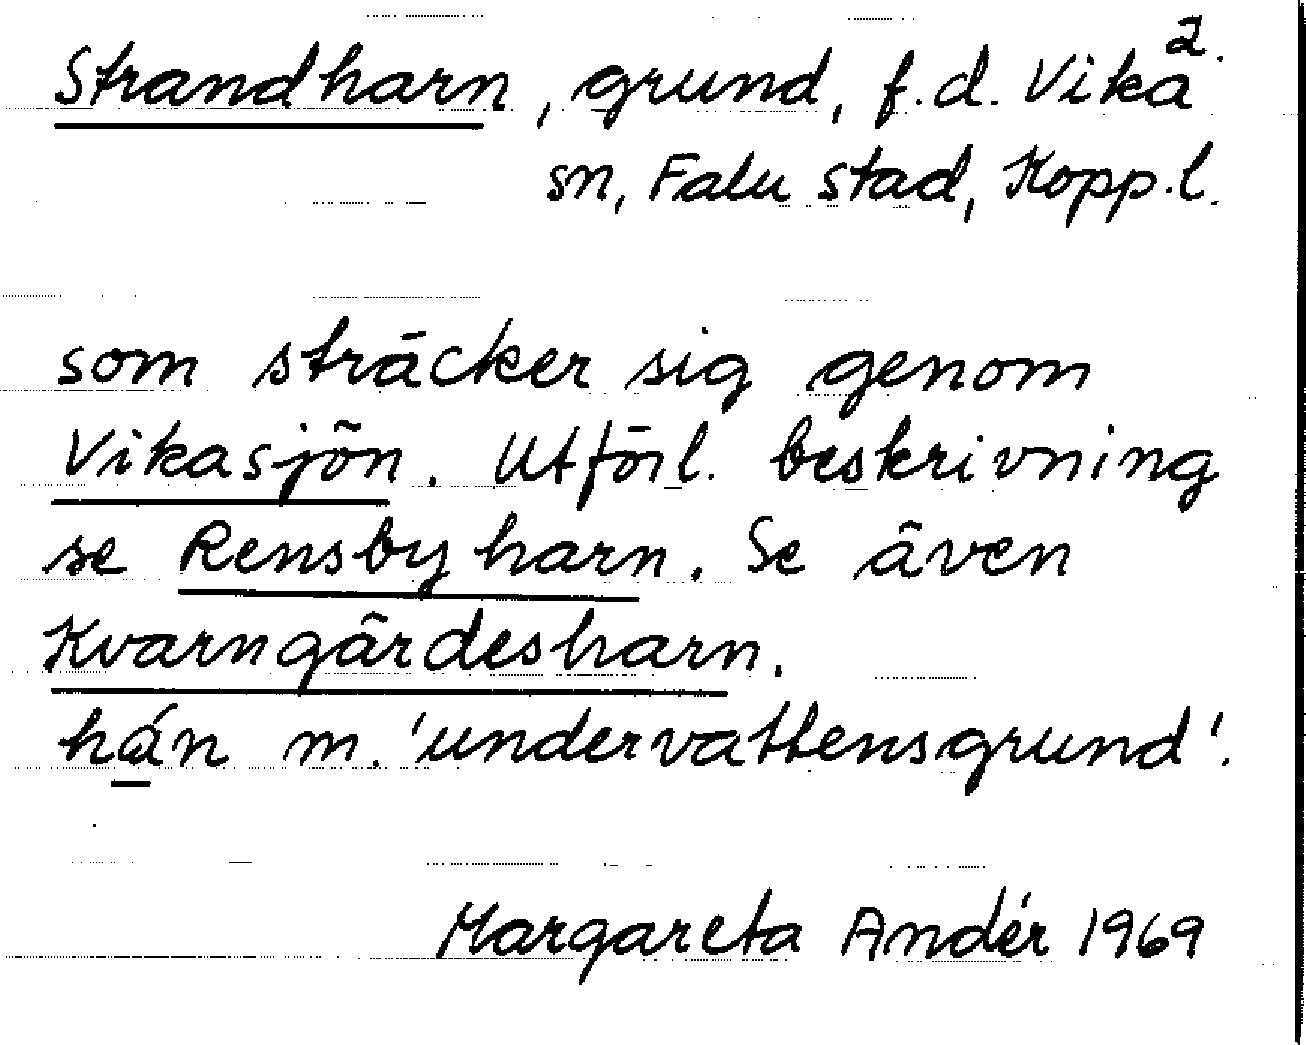 2.
Strandharn, grund, f.d. Vika
sn, Falu stad, Kopp.l.
som sträcker sig genom
Vikasjön. Utförl. beskrivning
se Rensbyharn. Se även
Kvarngärdesharn.
hán m. 'undervattensgrund'.
Margareta Andér 1969